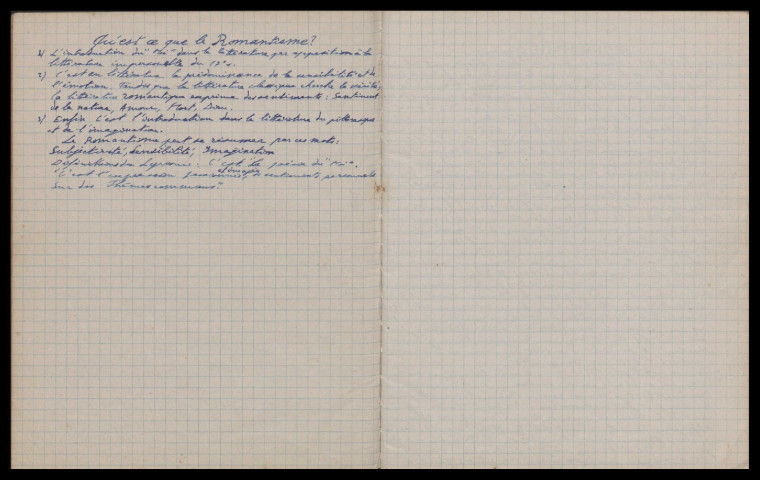 Qu'est ce que le Romantisme?
1) L'introduction du "Moi" dans la littérature par opposition à la
littérature impersonnelle du 17e s.
2) C'est en littérature la prédominance de la sensibilité et de
l'émotion. Tandis que la littérature classique cherche la vérité,
la littérature romantique exprime des sentiments: Sentiment
de la nature, Amour, Mort, Dieu.
3) Enfin c'est l'introduction dans la littérature du pittoresque
et de l'imagination.
Le Romantisme peut se résumer par ces mots:
Subjectivité, Sensibilité, Imagination
Définitions du Lyrisme: C'est la poésie du "Moi".
"C'est l'expression personnelle de sentiments personnels
sur des Thèmes communs"